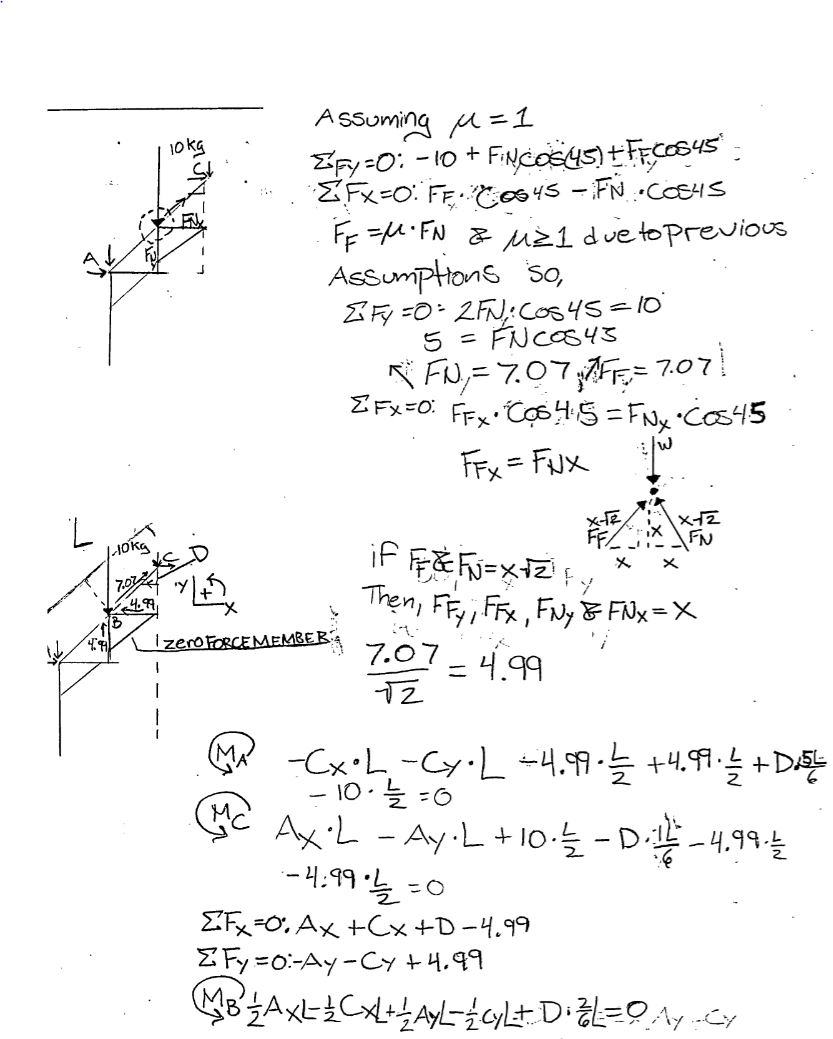 Assuming μ = 1
10kg
ΣFy=0: -10 + FNcos(45) + FFcos45
C
ΣFx=0: FF · Cos45 - FN · Cos45
FN
FF = μ·FN & μ≥1 due to previous
A
Assumptions so,
ΣFy=0: 2FN·Cos45 = 10
5 = FNcos45
↖ FN = 7.07, ↗ FF = 7.07
ΣFx=0: FFx · Cos45 = FNx · Cos45
FFx = FNx
W
x√2 x x√2
FF FN
x x
L
-10kg C D
7.07
y + x
4.99
B
4.99
zero FORCE MEMBER
if FF & FN = x√2
Then, FFy, FFx, FNy & FNx = x
7.07/√2 = 4.99
MA -Cx·L -Cy·L -4.99·L/2 +4.99·L/2 + D·5L/6
-10·L/2 = 0
MC Ax·L - Ay·L + 10·L/2 - D·1L/6 - 4.99·L/2
-4.99·L/2 = 0
ΣFx=0: Ax + Cx + D - 4.99
ΣFy=0: -Ay - Cy + 4.99
MB 1/2AxL-1/2CxL+1/2AyL-1/2CyL+ D·2/6L=0 Ay - Cy